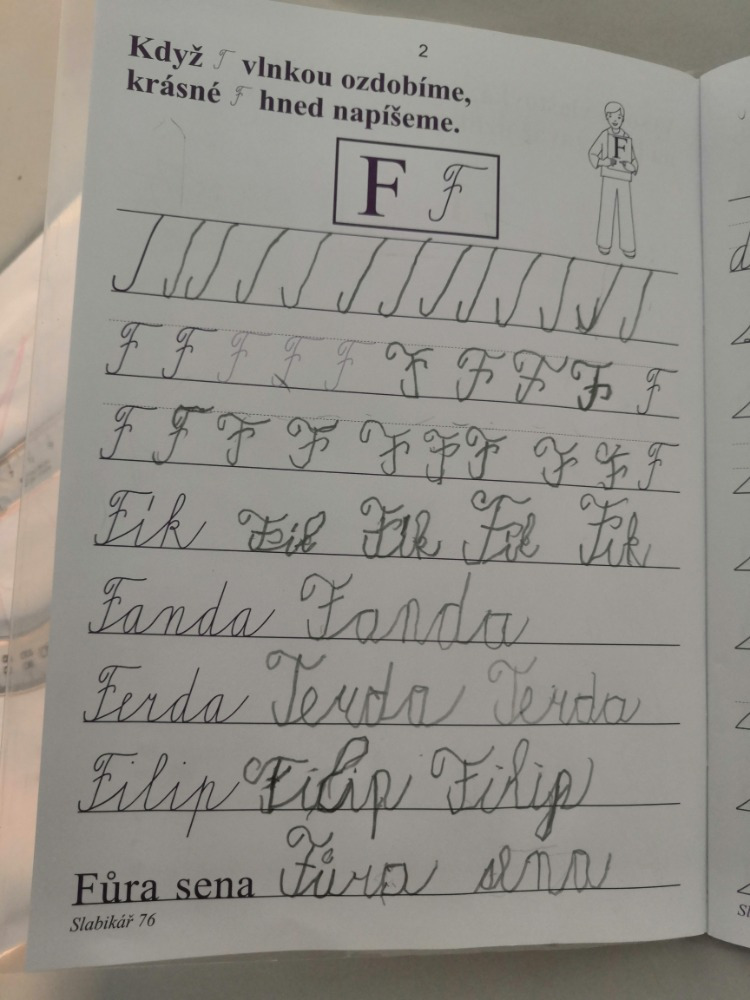 2
Když F vlnkou ozdobíme,
krásné F hned napíšeme.
F
F F
F F F F F F F F F F
F F F F F F F F F F
Fík Fik Fik Fik Fik
Fanda Fanda
Ferda Ferda Ferda
Filip Filip Filip
Fůra sena Fůra sena
Slabikář 76